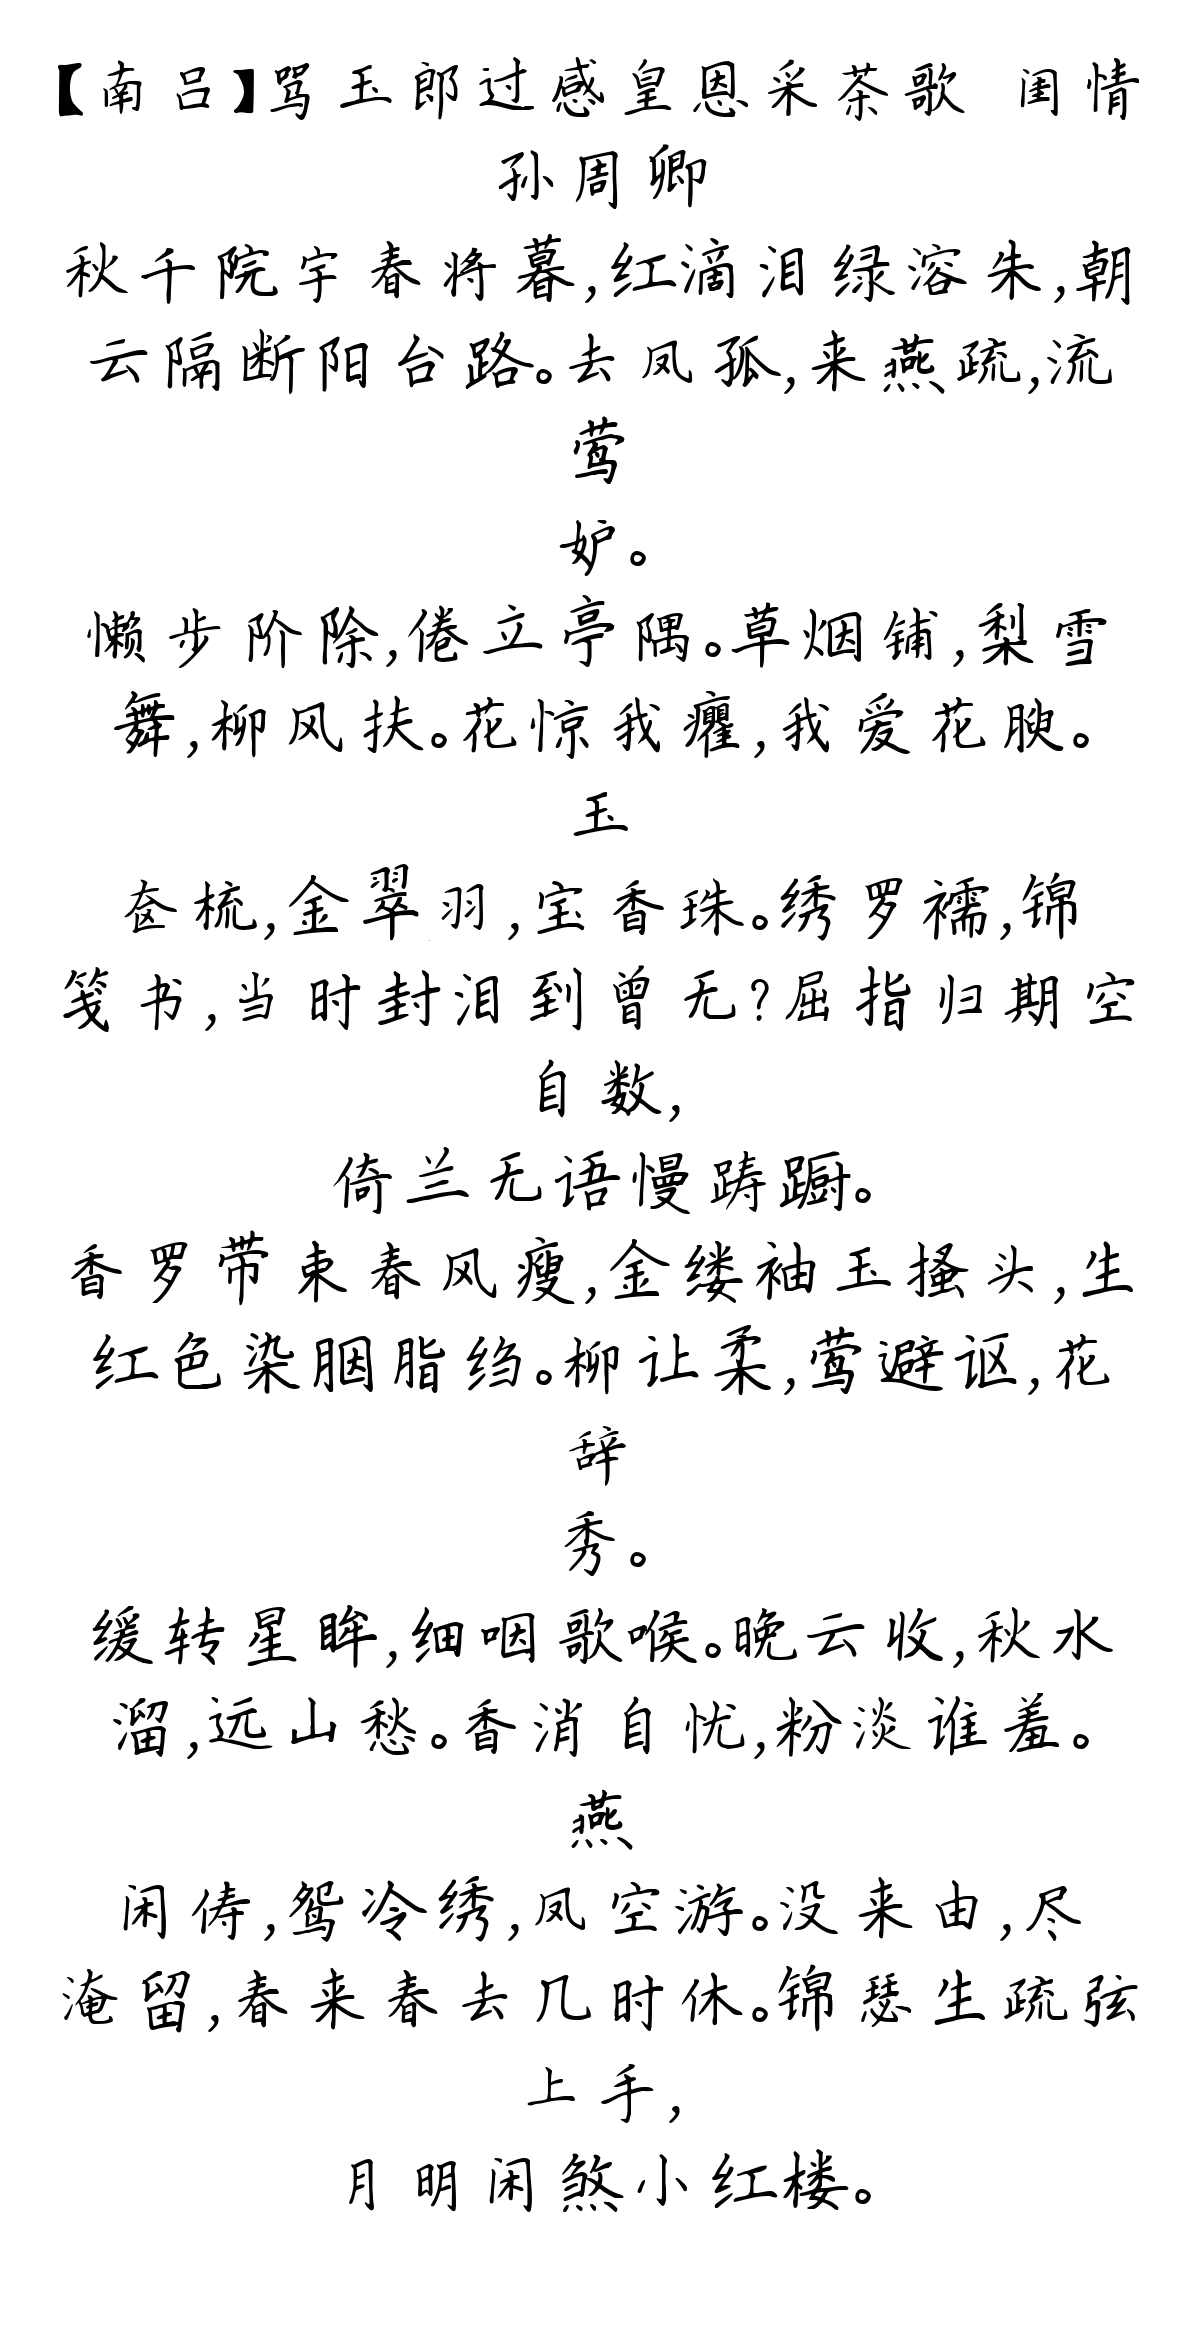 【南吕】骂玉郎过感皇恩采茶歌 闺情
孙周卿
秋千院宇春将暮,红滴泪绿溶朱,朝
云隔断阳台路。去凤孤,来燕疏,流
莺
妒。
懒步阶除,倦立亭隅。草烟铺,梨雪
舞,柳风扶。花惊我癯,我爱花腴。
玉
奁梳,金翠羽,宝香珠。绣罗襦,锦
笺书,当时封泪到曾无?屈指归期空
自数,
倚兰无语慢踌蹰。
香罗带束春风瘦,金缕袖玉搔头,生
红色染胭脂绉。柳让柔,莺避讴,花
辞
秀。
缓转星眸,细咽歌喉。晚云收,秋水
溜,远山愁。香消自忧,粉淡谁羞。
燕
闲俦,鸳冷绣,凤空游。没来由,尽
淹留,春来春去几时休。锦瑟生疏弦
上手,
月明闲煞小红楼。